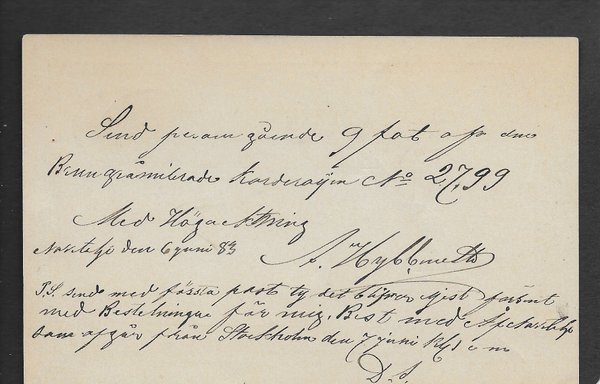 Send per omgående 9 fot af den
Brun gråmilerade Korderoijen No 2799
Med Högacktning
Norrtelje den 6 juni 83
A. Hybbeneth
P.S. send med första post ty det blifver ejest försent
med Bestelningen för mig. Best med Ångf Norrtelje
som afgår från Stockholm den 7 juni Kl 1 e m
D. S.